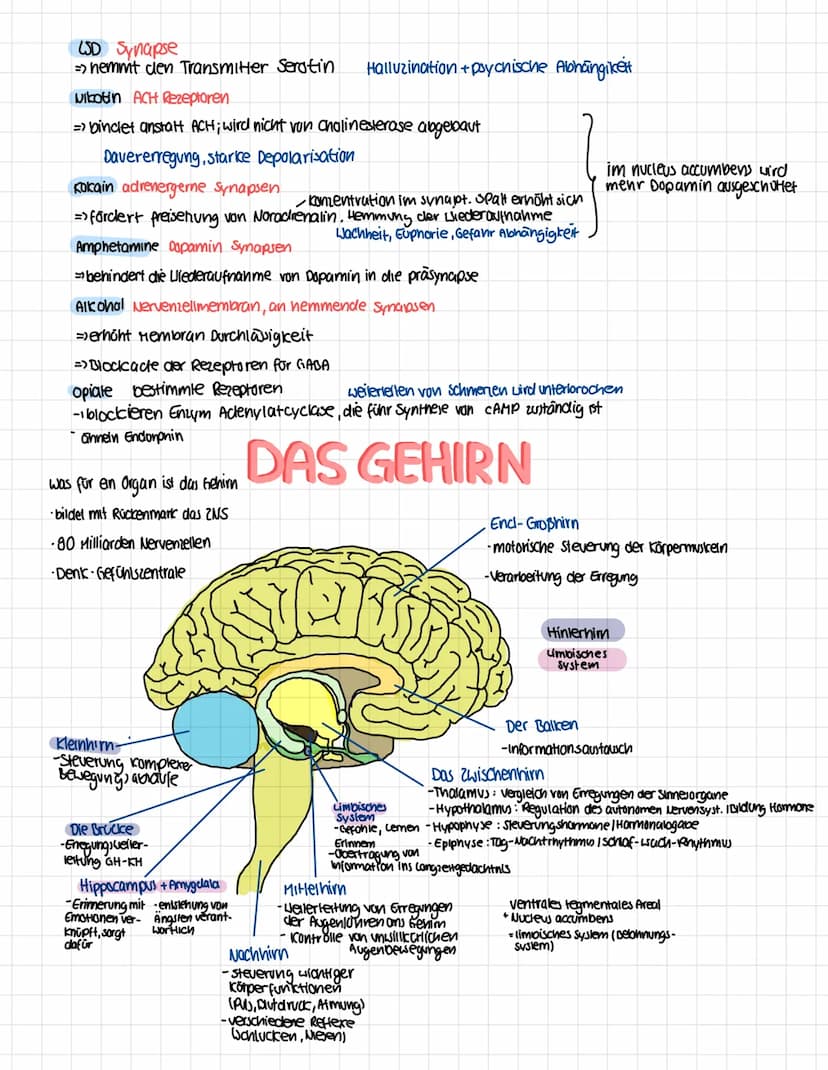 LSD Synapse
=> hemmt den Transmitter Serotin Halluzination + psychische Abhängikeit
Nikotin ACH Rezeptoren
=> bindet anstatt ACH; wird nicht von Cholinesterase abgebaut
Dauererregung, starke Depolarisation
im nucleus accumbens wird
mehr Dopamin ausgeschüttet
Kokain adrenergerne Synapsen
Konzentration im synapt. Spalt erhöht sich
=> fördert freisetzung von Noradrenalin, Hemmung der Wiederaufnahme
Wachheit, Euphorie, Gefahr Abhängigkeit
Amphetamine Dopamin Synapsen
=> behindert die Wiederaufnahme von Dopamin in die präsynapse
Alkohol Nervenzellmembran, an hemmende Synapsen
=> erhöht Membran Durchlässigkeit
=> Blockade der Rezeptoren für GABA
Opiate bestimmte Rezeptoren weiterleiten von Schmerzen wird unterbrochen
- blockieren Enzym Adenylatcyclase, die führ Synthese von cAMP zuständig ist
- ähneln Endorphin
DAS GEHIRN
Was für en Organ ist das Gehirn
· bildet mit Rückenmark das ZNS
· 80 Milliarden Nervenzellen
· Denk- Gefühlszentrale
End- Großhirn
- motorische Steuerung der Körpermuskeln
- Verarbeitung der Erregung
Hinterhirn
Limbisches
System
Der Balken
- Informationsaustausch
Kleinhirn
- Steuerung komplexer
Bewegungsabläufe
Das Zwischenhirn
- Thalamus: Vergleich von Erregungen der Sinnesorgane
- Hypothalamus: Regulation des autonomen Nervensyst. / Bildung Hormone
- Hypophyse: Steuerungshormone / Hormonabgabe
- Epiphyse: Tag-Nachtrhythmus / Schlaf-Wach-Rhythmus
Limbisches
System
- Gefühle, Lernen
Erinnern
- Übertragung von
Information ins Langzeitgedächtnis
Die Brücke
- Erregungsweiter-
leitung GH-KH
Hippocampus + Amygdala
- Erinnerung mit
Emotionen ver-
knüpft, sorgt
dafür
- entstehung von
Ängsten verant-
wortlich
Mittelhirn
- Weiterleitung von Erregungen
der Augen/Ohren ans Gehirn
- Kontrolle von unwillkürlichen
Augenbewegungen
Ventrales tegmentales Areal
+ Nucleus accumbens
= limbisches System (Belohnungs-
system)
Nachhirn
- Steuerung wichtiger
Körperfunktionen
(Puls, Blutdruck, Atmung)
- verschiedene Reflexe
(Schlucken, Niesen)